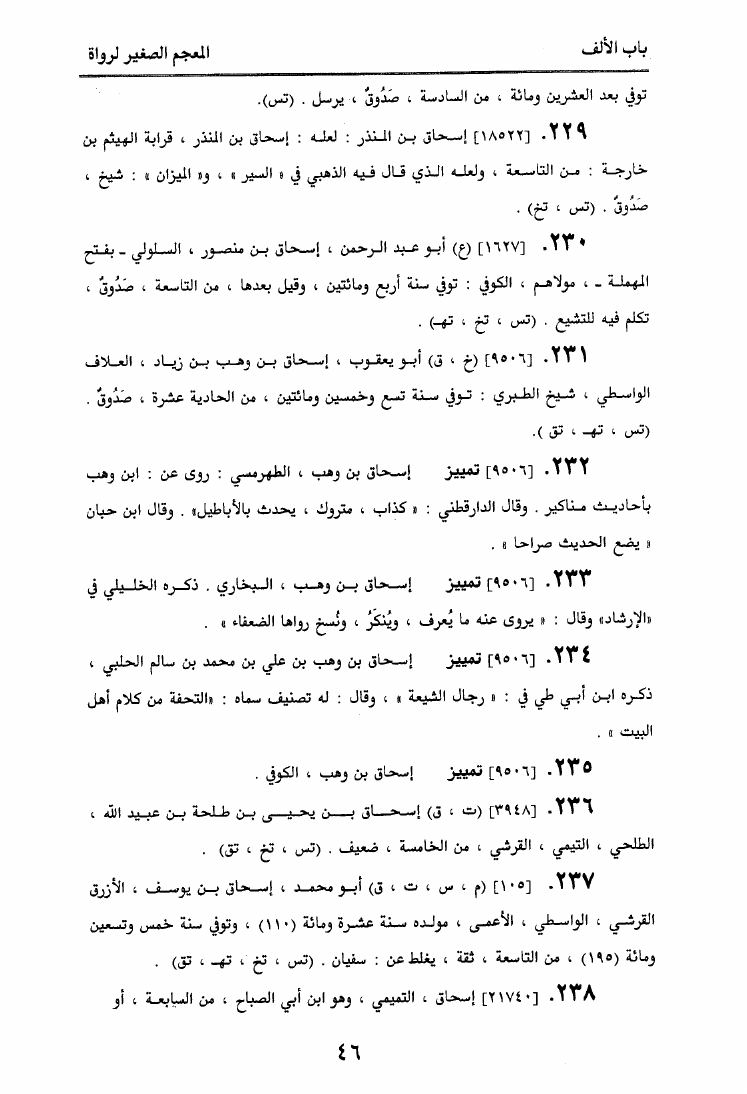 باب الألف
المعجم الصغير لرواة
توفي بعد العشرين ومائة ، من السادسة ، صَدُوقٌ ، يرسل . (تس).
٢٢٩. [١٨٥٢٢] إسحاق بن المنذر : لعله : إسحاق بن المنذر ، قرابة الهيثم بن
خارجة : من التاسعة ، ولعله الذي قال فيه الذهبي في « السير » ، و« الميزان » : شيخ ،
صَدُوقٌ . (تس ، تخ) .
٢٣٠. [١٦٢٧] (ع) أبو عبد الرحمن ، إسحاق بن منصور ، السلولي ـ بفتح
المهملة ـ ، مولاهم ، الكوفي : توفي سنة أربع ومائتين ، وقيل بعدها ، من التاسعة ، صَدُوقٌ ،
تكلم فيه للتشيع . (تس ، تخ ، تهـ) .
٢٣١. [٩٥٠٦] (خ ، ق) أبو يعقوب ، إسحاق بن وهب بن زياد ، العلاف
الواسطي ، شيخ الطبري : توفي سنة تسع وخمسين ومائتين ، من الحادية عشرة ، صَدُوقٌ .
(تس ، تهـ ، تق ).
٢٣٢. [٩٥٠٦] تمييز إسحاق بن وهب ، الطهرمسي : روى عن : ابن وهب
بأحاديث مناكير . وقال الدارقطني : « كذاب ، متروك ، يحدث بالأباطيل» . وقال ابن حبان
« يضع الحديث صراحا » .
٢٣٣. [٩٥٠٦] تمييز إسحاق بن وهب ، البخاري . ذكره الخليلي في
«الإرشاد» وقال : « يروى عنه ما يُعرف ، ويُنكَرُ ، ونُسخ رواها الضعفاء » .
٢٣٤. [٩٥٠٦] تمييز إسحاق بن وهب بن علي بن محمد بن سالم الحلبي ،
ذكره ابن أبي طي في : « رجال الشيعة » ، وقال : له تصنيف سماه : «التحفة من كلام أهل
البيت » .
٢٣٥. [٩٥٠٦] تمييز إسحاق بن وهب ، الكوفي .
٢٣٦. [٣٩٤٨] (ت ، ق) إسحاق بن يحيى بن طلحة بن عبيد الله ،
الطلحي ، التيمي ، القرشي ، من الخامسة ، ضعيف . (تس ، تخ ، تق) .
٢٣٧. [١٠٥] (م ، س ، ت ، ق) أبو محمد ، إسحاق بن يوسف ، الأزرق
القرشي ، الواسطي ، الأعمى ، مولده سنة عشرة ومائة (١١٠) ، وتوفي سنة خمس وتسعين
ومائة (١٩٥) ، من التاسعة ، ثقة ، يغلط عن : سفيان . (تس ، تخ ، تهـ ، تق) .
٢٣٨. [٢١٧٤٠] إسحاق ، التميمي ، وهو ابن أبي الصباح ، من السابعة ، أو
٤٦